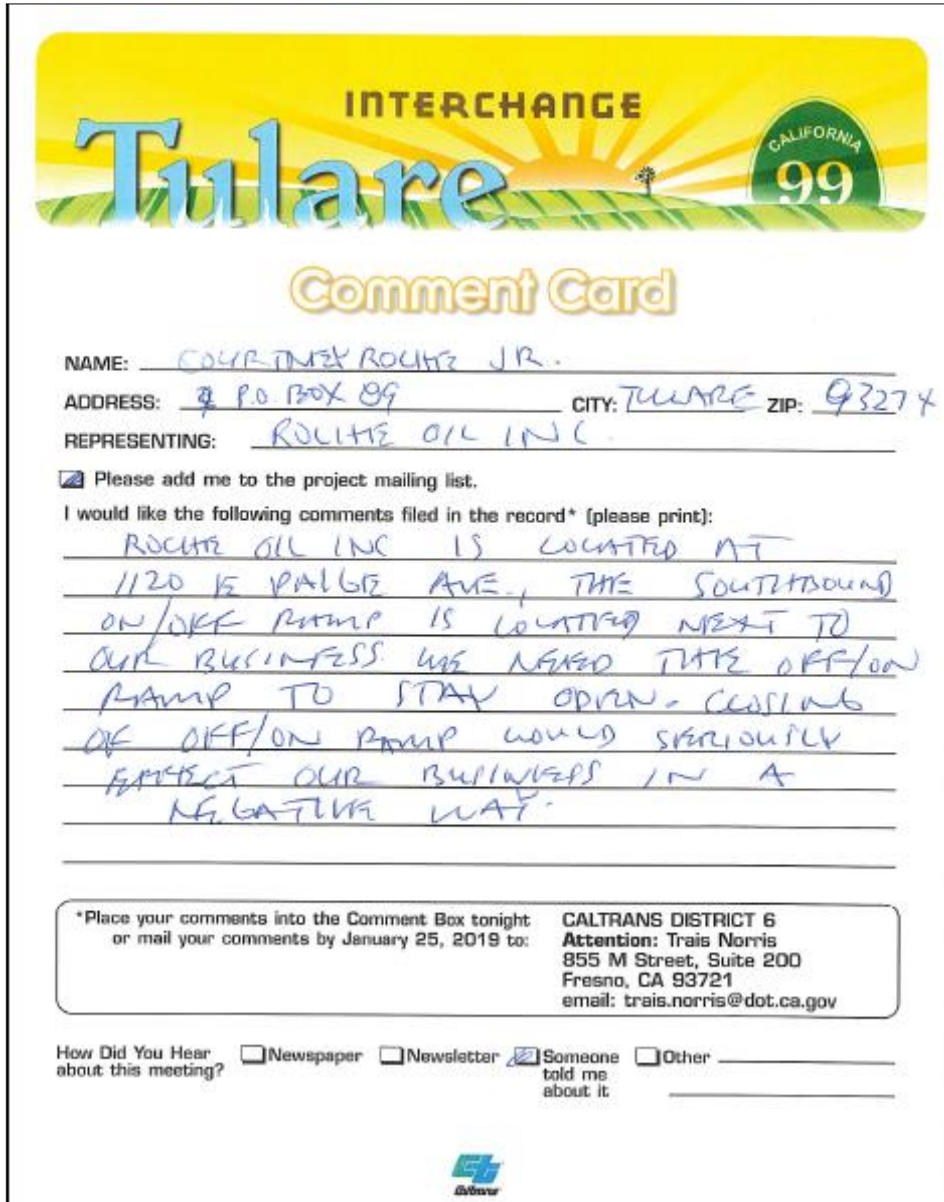 INTERCHANGE
Tulare
CALIFORNIA
99
Comment Card
NAME: COURTNEY ROCHE JR.
ADDRESS: P.O. BOX 89 CITY: TULARE ZIP: 93274
REPRESENTING: ROCHE OIL INC.
Please add me to the project mailing list.
I would like the following comments filed in the record* (please print):
ROCHE OIL INC IS LOCATED AT
1120 E PAIGE AVE., THE SOUTHBOUND
ON/OFF RAMP IS LOCATED NEXT TO
OUR BUSINESS. WE NEED THE OFF/ON
RAMP TO STAY OPEN. CLOSING
OF OFF/ON RAMP WOULD SERIOUSLY
EFFECT OUR BUSINESS IN A
NEGATIVE WAY.
*Place your comments into the Comment Box tonight
or mail your comments by January 25, 2019 to:
CALTRANS DISTRICT 6
Attention: Trais Norris
855 M Street, Suite 200
Fresno, CA 93721
email: trais.norris@dot.ca.gov
How Did You Hear
about this meeting?
Newspaper
Newsletter
Someone
told me
about it
Other
Caltrans